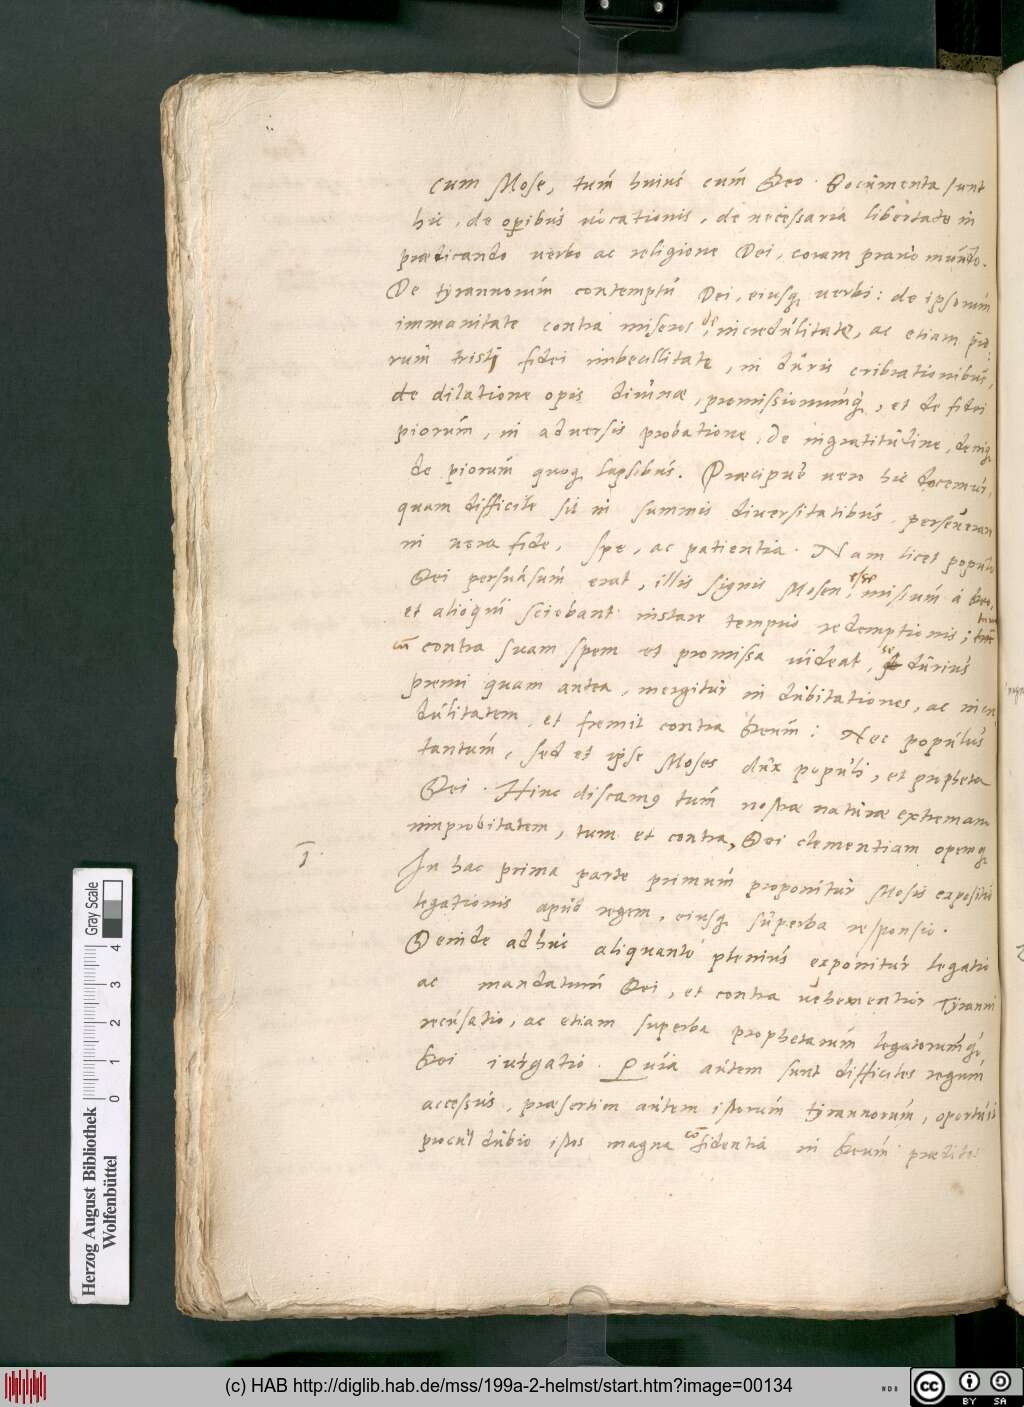 cum Mose, tum huius cum Deo. Documenta sunt
hic, de operibus vocationis, de necessaria libertate in
prædicando verbo ac religione Dei, coram pravo mundo.
De tyrannorum contemptu Dei, eiusq verbi: de ipsorum
immanitate contra miseros, de incredulitate, ac etiam pio
rum tristi fidei imbecillitate, in duris cribrationibus,
de dilatione opis divinæ, promissionumq, et de fidei
piorum, in adversis probatione, de ingratitudine, deniq
de piorum quoq lapsibus. Præcipue vero hic docemur,
quam difficile sit in summis diversitatibus perseverare
in vera fide, spe, ac patientia. Nam licet populo
Dei persuasum erat, illis signis Mosen esse missum á Deo,
et alioqui sciebant instare tempus redemptionis; tamen
cum contra suam spem et promissa videat, se durius
premi quam antea, mergitur in dubitationes, ac incre
dulitatem, et fremit contra Deum: Nec populus
tantum, sed et ipse Moses dux populi, et propheta
Dei. Hinc discamus tum nostræ naturæ extremam
improbitatem, tum et contra, Dei clementiam opemq
1.
In hac prima parte primum proponitur Mosis expositio
legationis apud regem, eiusq superba responsio.
Deinde adhuc aliquanto plenius exponitur legatio
ac mandatum Dei, et contra vehementior Tyranni
recusatio, ac etiam superba prophetarum legatorumq
Dei iurgatio. Quia autem sunt difficiles regum
accessus, præsertim autem istorum tyrannorum, oportuit
procul dubio istos magna confidentia in Deum præditos
Herzog August Bibliothek
Wolfenbüttel
0 1 2 3 4
Gray Scale
(c) HAB http://diglib.hab.de/mss/199a-2-helmst/start.htm?image=00134
NDB
cc BY SA